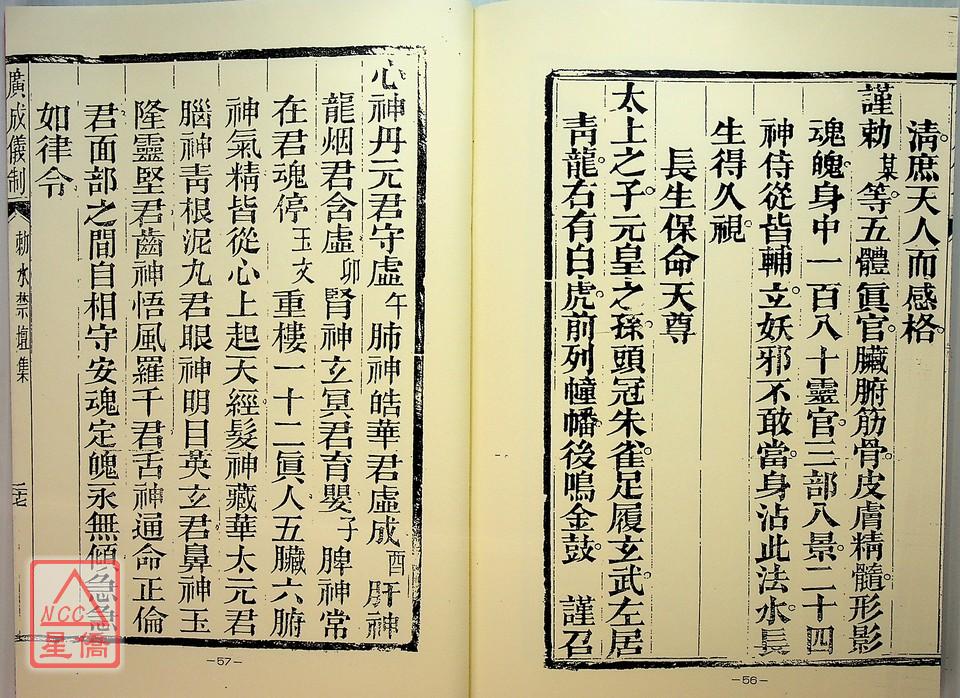 清庶天人而感格。
謹勅某等五體眞官。臟腑筋骨皮膚精髓。形影
魂魄。身中一百八十靈官。三部八景。二十四
神侍從皆輔立。妖邪不敢當。身沾此法水。長
生得久視。
長生保命天尊
太上之子。元皇之孫。頭冠朱雀。足履玄武。左居
青龍。右有白虎。前列幢幡。後鳴金鼓。 謹召
—56—
心神丹元君守虛午肺神皓華君虛成酉肝神
龍烟君含虛卯腎神玄冥君育嬰子脾神常
在君魂停玉文重樓一十二眞人五臟六腑
神氣精皆從心上起天經髮神藏華太元君
腦神青根泥九君眼神明目英玄君鼻神玉
隆靈堅君齒神悟風羅千君舌神通命正倫
君面部之間自相守安魂定魄永無傾急急
如律令
廣成儀制 勅水禁壇集 二十七
—57—
NCC
星僑